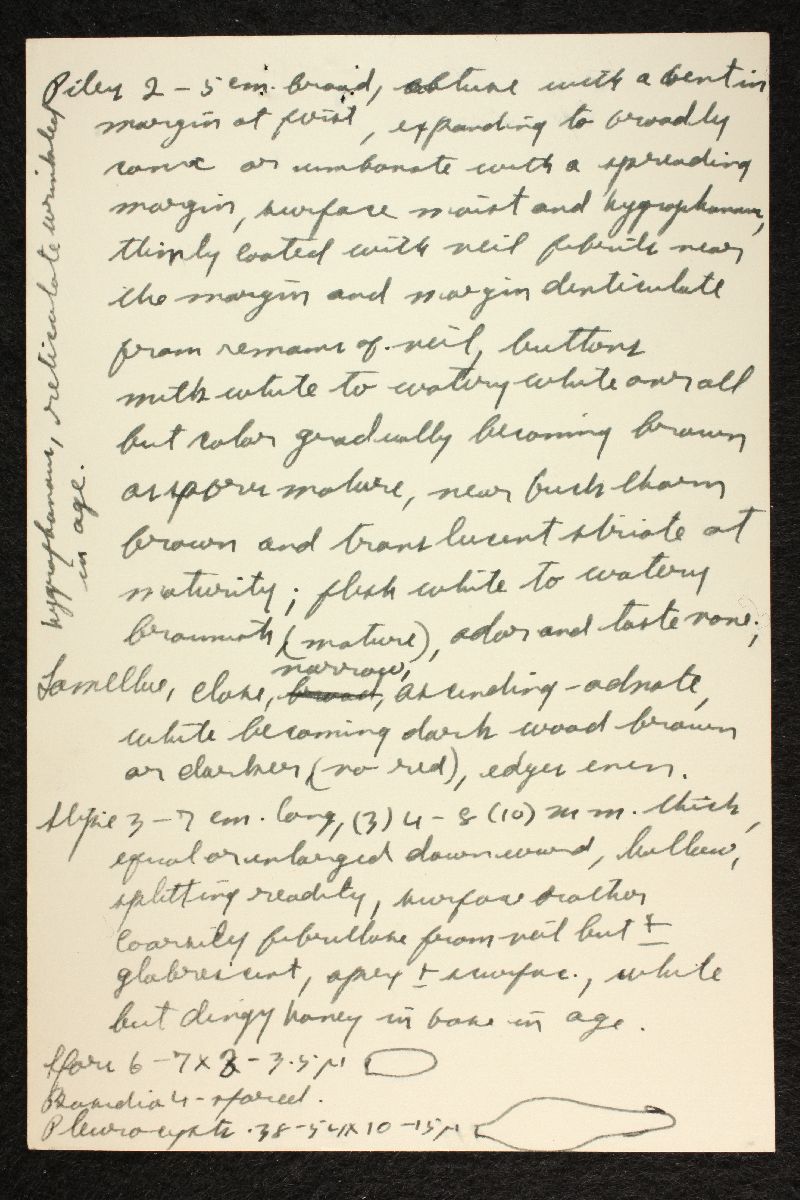 Pileus 2 – 5 cm. broad, obtuse with a bent in
margin at first, expanding to broadly
conic or umbonate with a spreading
margin, surface moist and hygrophanous,
thinly coated with veil fibrils near
the margin and margin denticulate
from remains of veil, buttons
milk white to watery white over all
but color gradually becoming brown
as spores mature, near
brown and translucent striate at
maturity; flesh white to watery
brownish (mature), odor and taste none;
hygrophanous, reticulate wrinkled
in age.
Lamellae, close, narrow, broad, ascending-adnate,
white becoming dark wood brown
or darker (no red), edges even.
Stipe 3 – 7 cm. long, (3) 4 – 8 (10) mm. thick,
equal or enlarged downward, hollow,
splitting readily, surface rather
coarsely fibrillose from veil but ±
glabrescent, apex ±, white
but dingy honey in base in age.
Spores 6 – 7 x 3 – 3.5 µ
Basidia 4-spored.
Pleurocysts. 38-54 x 10 -15 µ